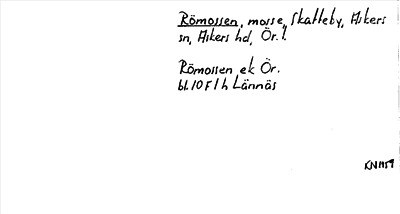 Römossen, mosse, Skatteby, Askers
sn, Askers hd, Ör. l.
Römossen ek Ör.
bl. 10 F 1 h Lännäs